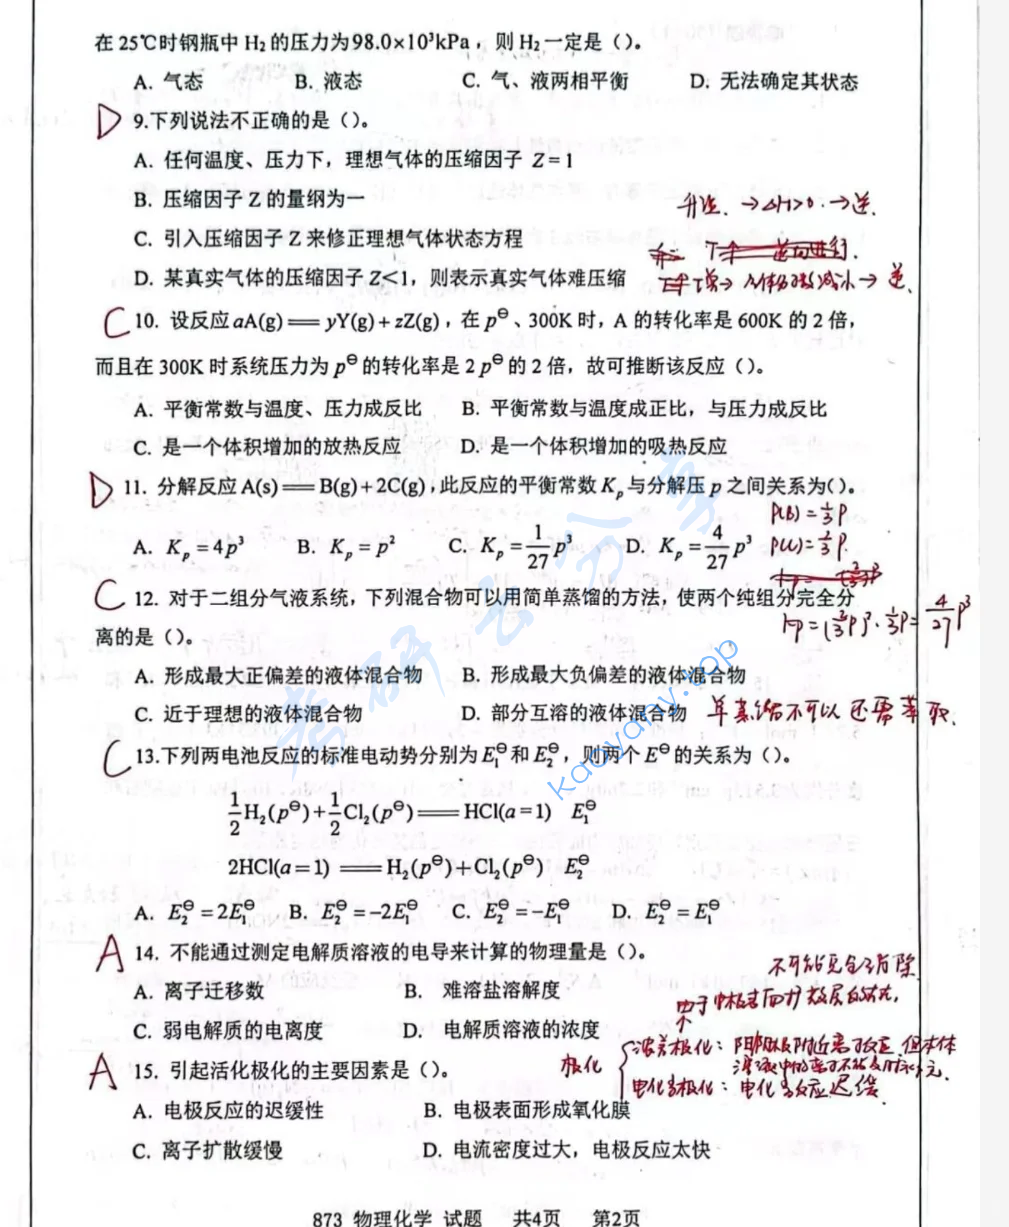 在25℃时钢瓶中 H₂ 的压力为98.0×10³kPa，则 H₂ 一定是（）。
A. 气态 B. 液态 C. 气、液两相平衡 D. 无法确定其状态
D 9.下列说法不正确的是（）。
A. 任何温度、压力下，理想气体的压缩因子 Z=1
B. 压缩因子 Z 的量纲为一
升温 → ΔH>0 → 逆.
C. 引入压缩因子 Z 来修正理想气体状态方程
D. 某真实气体的压缩因子 Z<1，则表示真实气体难压缩
→ 逆.
C 10. 设反应 aA(g)══yY(g)+zZ(g)，在 p⊖、300K 时，A 的转化率是 600K 的 2 倍，
而且在 300K 时系统压力为 p⊖ 的转化率是 2 p⊖ 的 2 倍，故可推断该反应（）。
A. 平衡常数与温度、压力成反比 B. 平衡常数与温度成正比，与压力成反比
C. 是一个体积增加的放热反应 D. 是一个体积增加的吸热反应
D 11. 分解反应 A(s)══B(g)+2C(g),此反应的平衡常数 Kₚ 与分解压 p 之间关系为()。
P(B)=1/3 P
A. Kₚ=4p³ B. Kₚ=p² C. Kₚ=1/27 p³ D. Kₚ=4/27 p³
P(C)=2/3 P.
C 12. 对于二组分气液系统，下列混合物可以用简单蒸馏的方法，使两个纯组分完全分
离的是（）。
kp=(2/3P)²·1/3P=4/27 P³
A. 形成最大正偏差的液体混合物 B. 形成最大负偏差的液体混合物
C. 近于理想的液体混合物 D. 部分互溶的液体混合物
单蒸馏不可以 还需萃取.
考研云分享
kaoyany.top
C 13.下列两电池反应的标准电动势分别为 E₁⊖ 和 E₂⊖，则两个 E⊖ 的关系为（）。
1/2 H₂(p⊖)+1/2 Cl₂(p⊖)══HCl(a=1) E₁⊖
2HCl(a=1)══H₂(p⊖)+Cl₂(p⊖) E₂⊖
A. E₂⊖=2E₁⊖ B. E₂⊖=-2E₁⊖ C. E₂⊖=-E₁⊖ D. E₂⊖=E₁⊖
A 14. 不能通过测定电解质溶液的电导来计算的物理量是（）。
不可能完全消除
A. 离子迁移数 B. 难溶盐溶解度
C. 弱电解质的电离度 D. 电解质溶液的浓度
A 15. 引起活化极化的主要因素是（）。
极化
浓差极化：
电化学极化：电化学反应迟缓.
A. 电极反应的迟缓性 B. 电极表面形成氧化膜
C. 离子扩散缓慢 D. 电流密度过大，电极反应太快
873 物理化学 试题 共4页 第2页